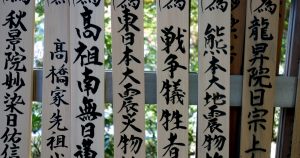 龍昇院日宗上
熊本大地震
戦争犠牲者
東日本大震災物故
高祖南無日蓮
高橋家先祖代
秋景院妙染日佑信